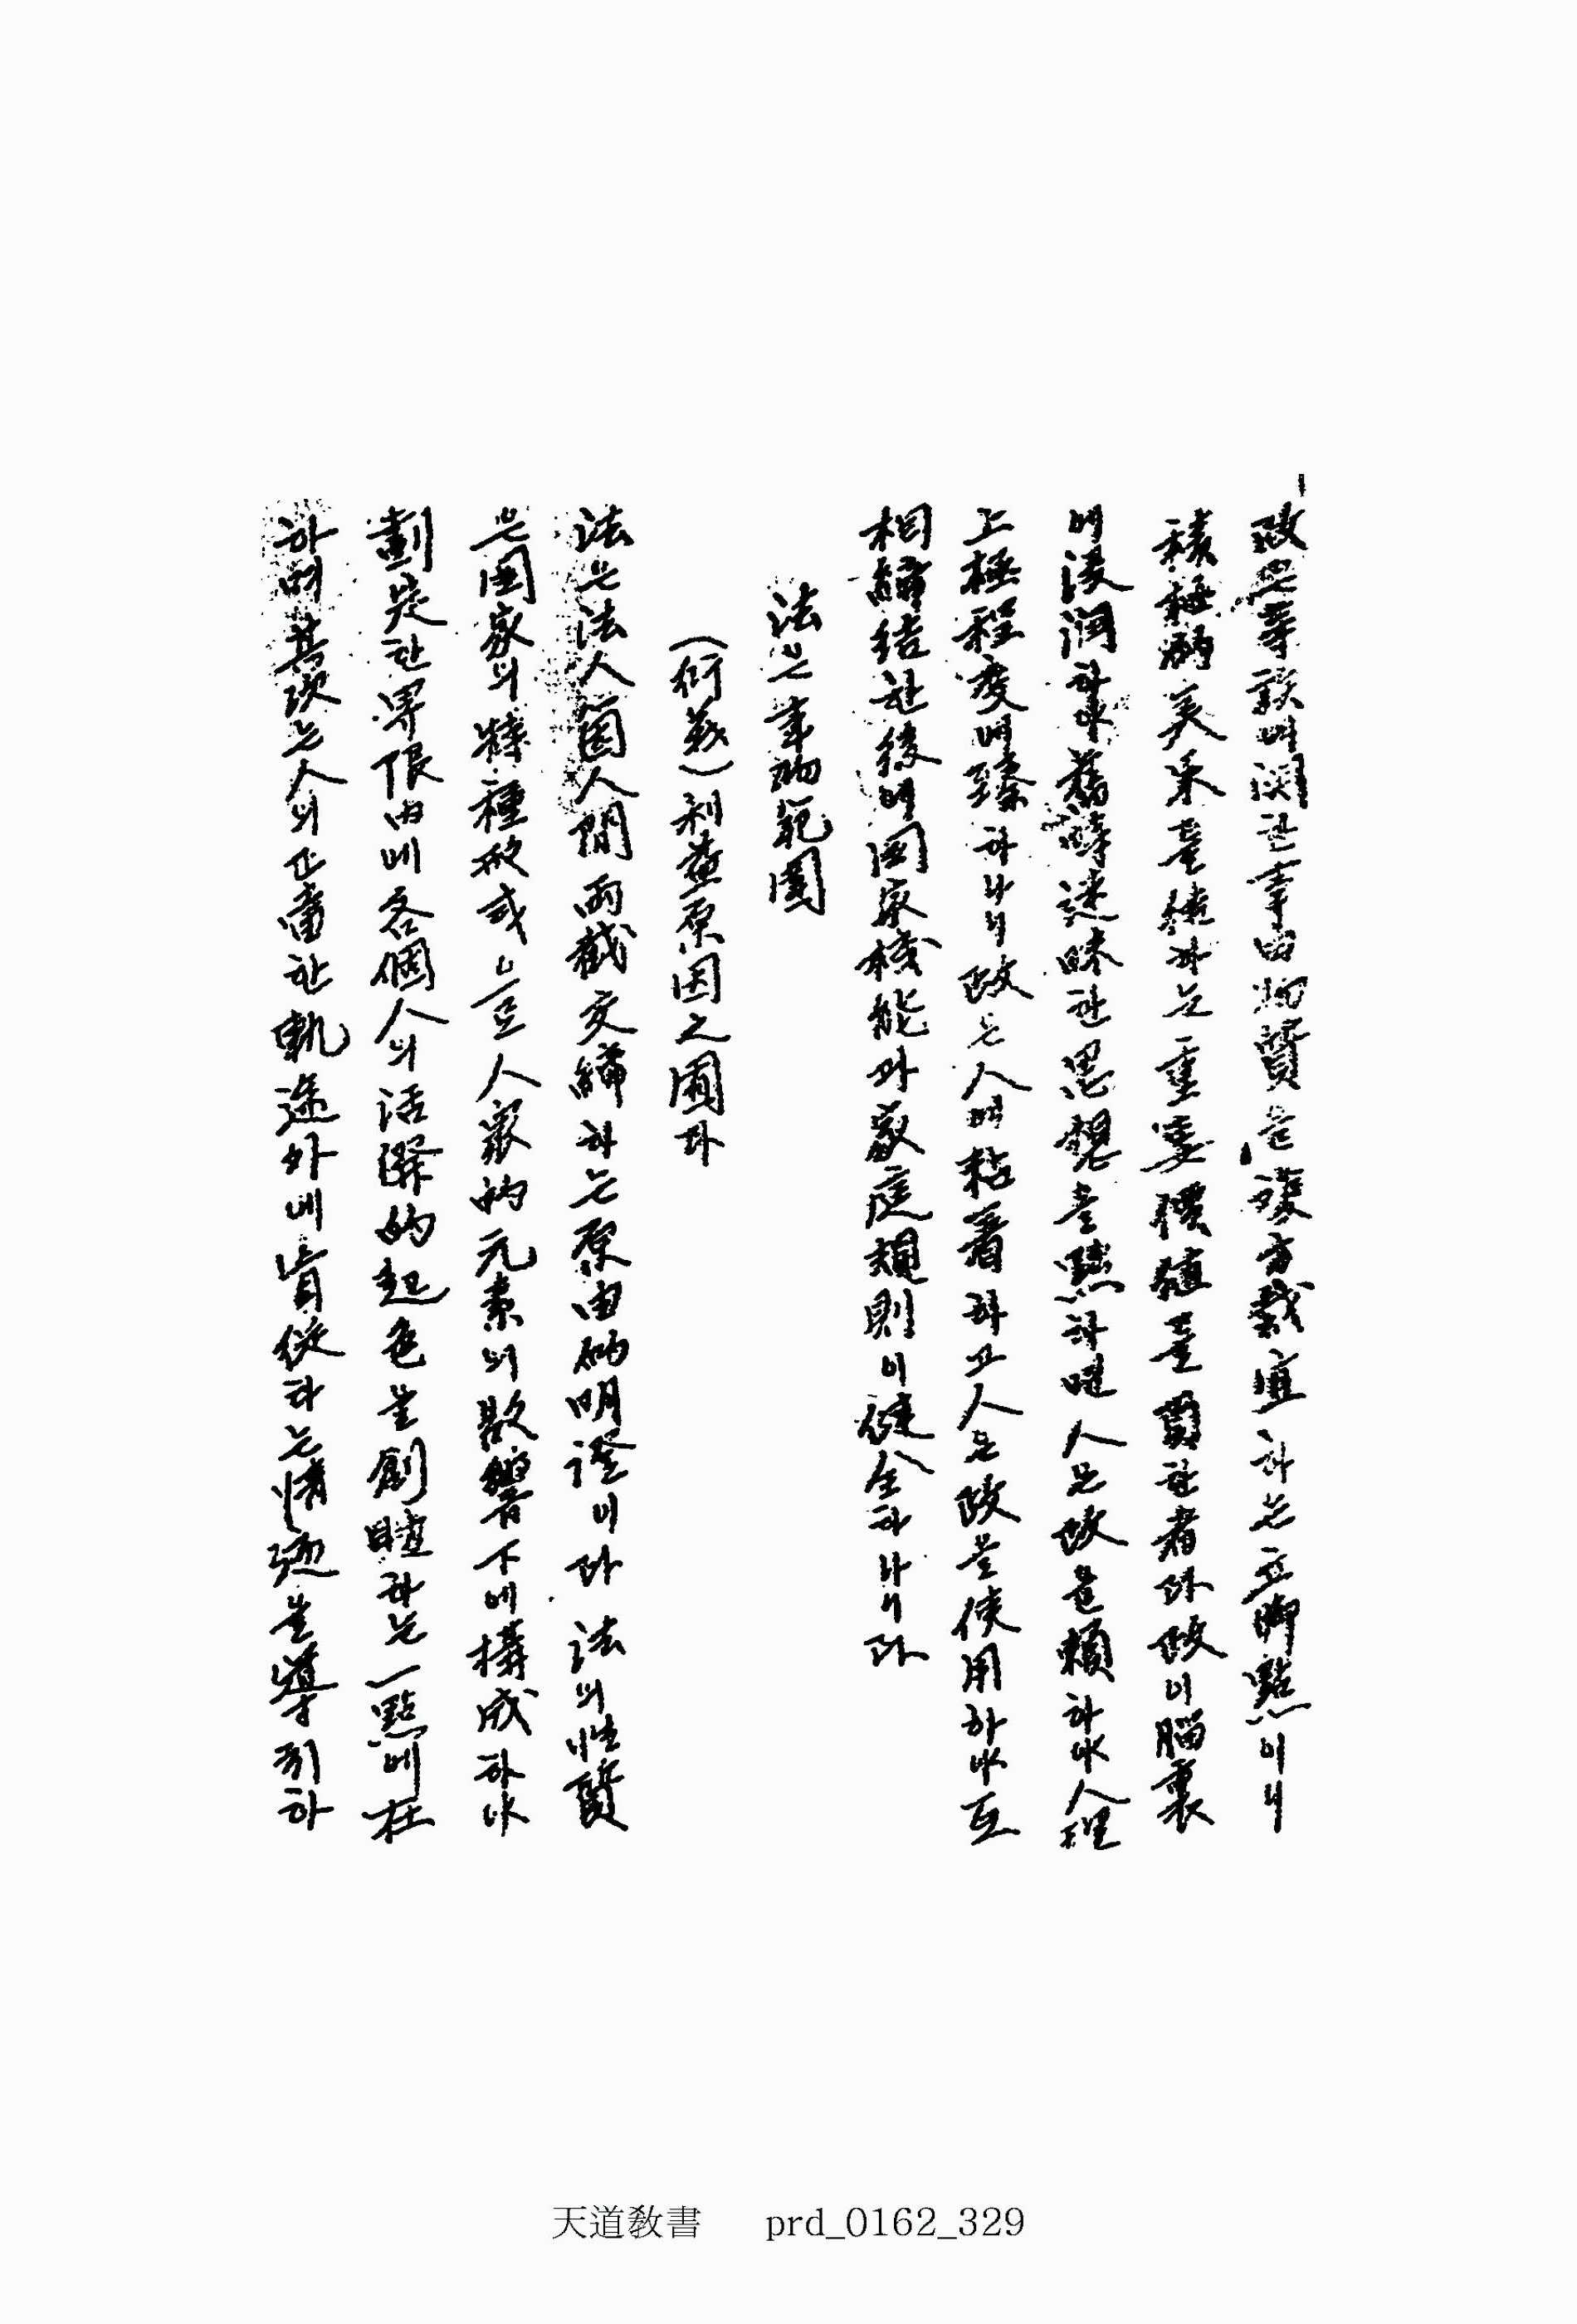 政은事該에関한事由物質을壤方裁宜하는立脚點이니
積極的美果를結하는重要價値를買한者라政이腦裏
에浸潤하야舊時迷昧한思想을黜하면人은政을賴하야人理
上極程度에臻하나니政은人에粘着하고人은政을使用하야互
相締結한後에国家機能과家庭規則이健全하나니라
法은事物範圍
(衍義)利益原因之圃라
法은法人箇人間兩截交締하는原由的明證이라法의性質
은国家의特種歟或은人衆的元素의影響下에構成하야
劃定한界限內에各個人의活潑的起色을創睹하는一點에在
하며其次는人의正當한軌途外에背從하는情迹을導引하
天道敎書 prd_0162_329